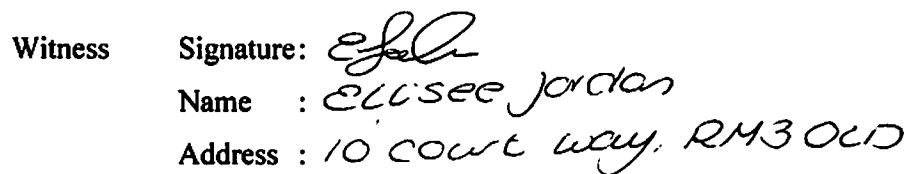 Witness Signature:
Name : Ellisee Jordan
Address : 10 court way, RM3 0LD